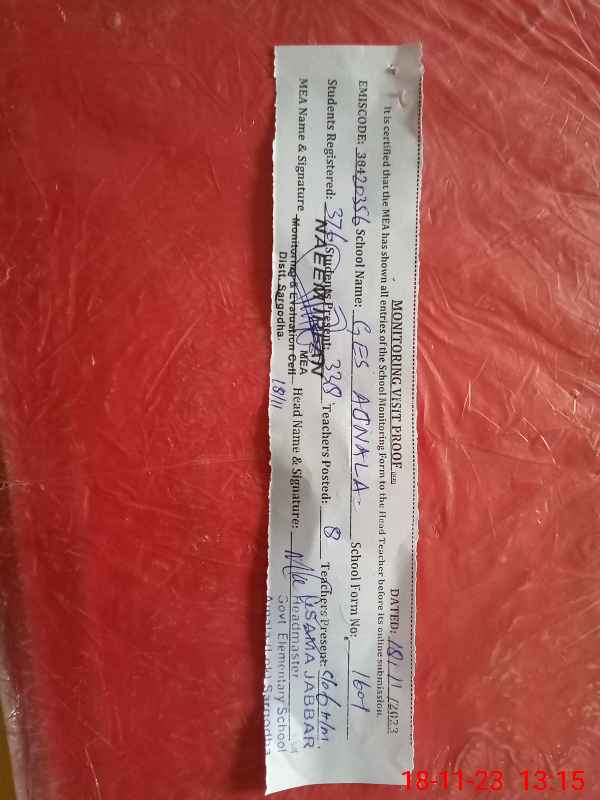 MONITORING VISIT PROOF
DATED: 18/11/2023
It is certified that the MEA has shown all entries of the School Monitoring Form to the Head Teacher before its online submission.
EMISCODE: 38420356 School Name: GES AJNALA School Form No: 1601
Students Registered: 376 Students Present: 338 Teachers Posted: 8 Teachers Present:
MEA Name & Signature Head Name & Signature:
NAEEM
MEA
Monitoring & Evaluation Cell
Distt. Sargodha.
18/11
USAMA JABBAR
Headmaster
Govt. Elementary School
Sargodha
18-11-23 13:15